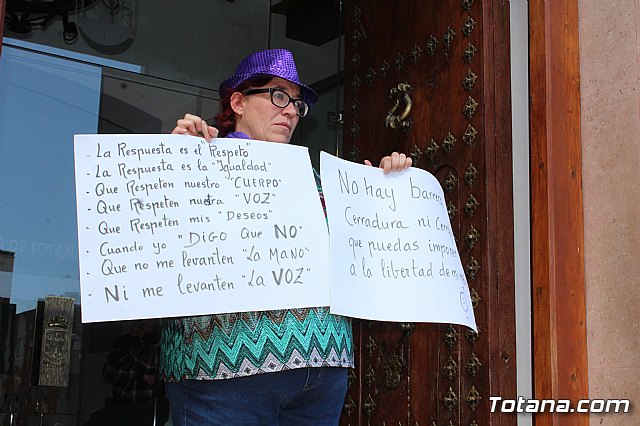 - La Respuesta es el "Respeto"
- La Respuesta es la "Igualdad"
- Que Respeten nuestro "CUERPO"
- Que Respeten nuestra "VOZ"
- Que Respeten mis "Deseos"
- Cuando yo "DIGO que NO"
- Que no me levanten "La MANO"
- Ni me levanten "La VOZ"
No hay barrera
Cerradura ni
que puedas
a la libertad de
DE TOTANA
www.Totana.com